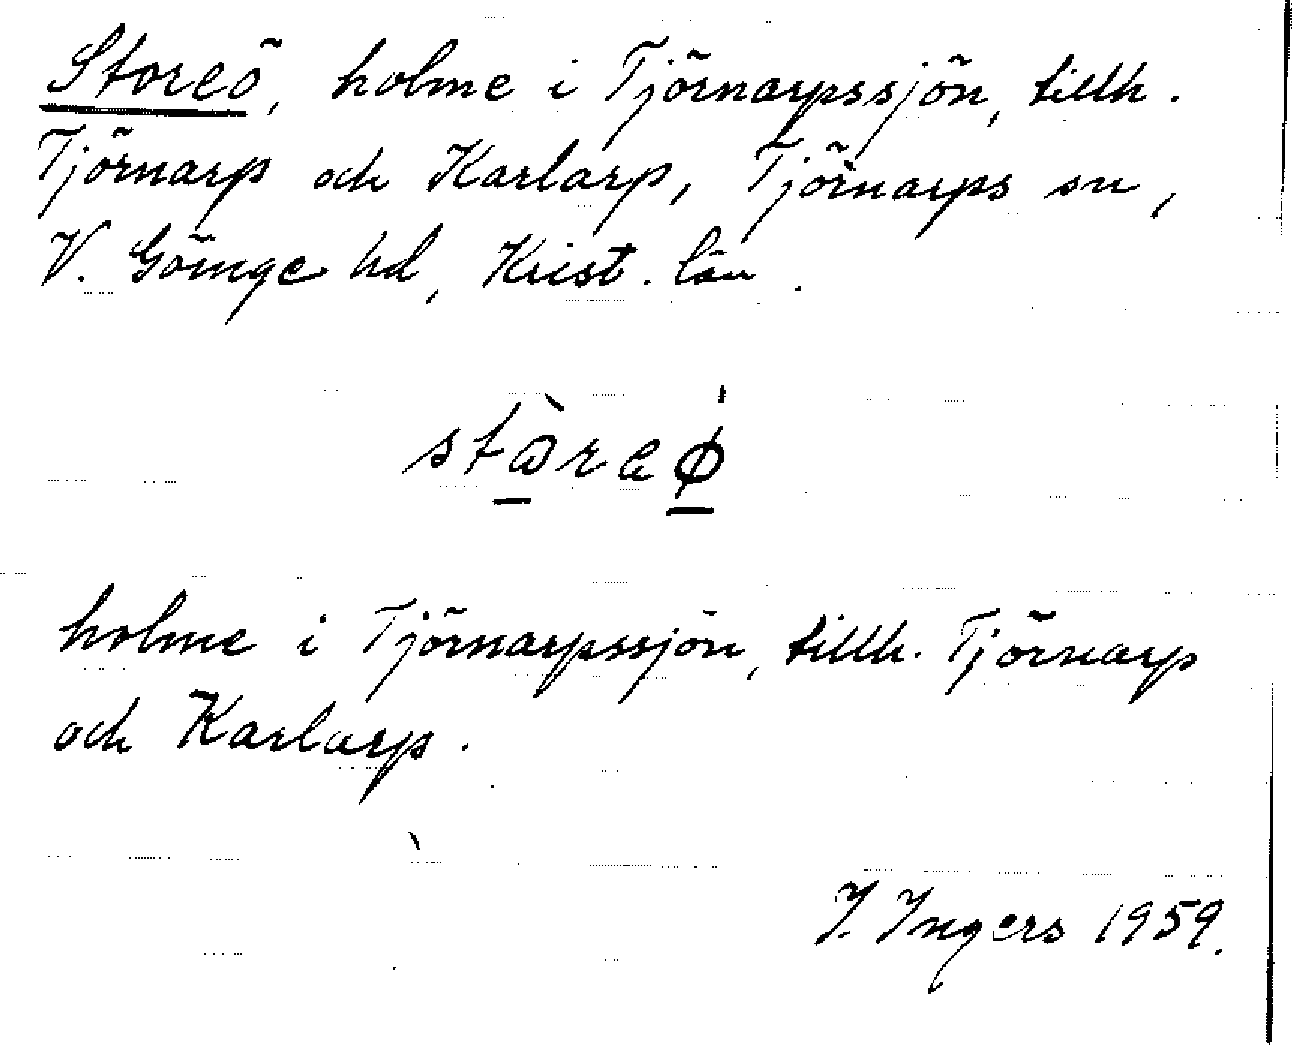 Storeö, holme i Tjörnarpssjön, tillh.
Tjörnarp och Karlarp, Tjörnarps sn,
V. Göinge hd, Krist. län.
holme i Tjörnarpssjön, tillh. Tjörnarp
och Karlarp.
I. Ingers 1959.